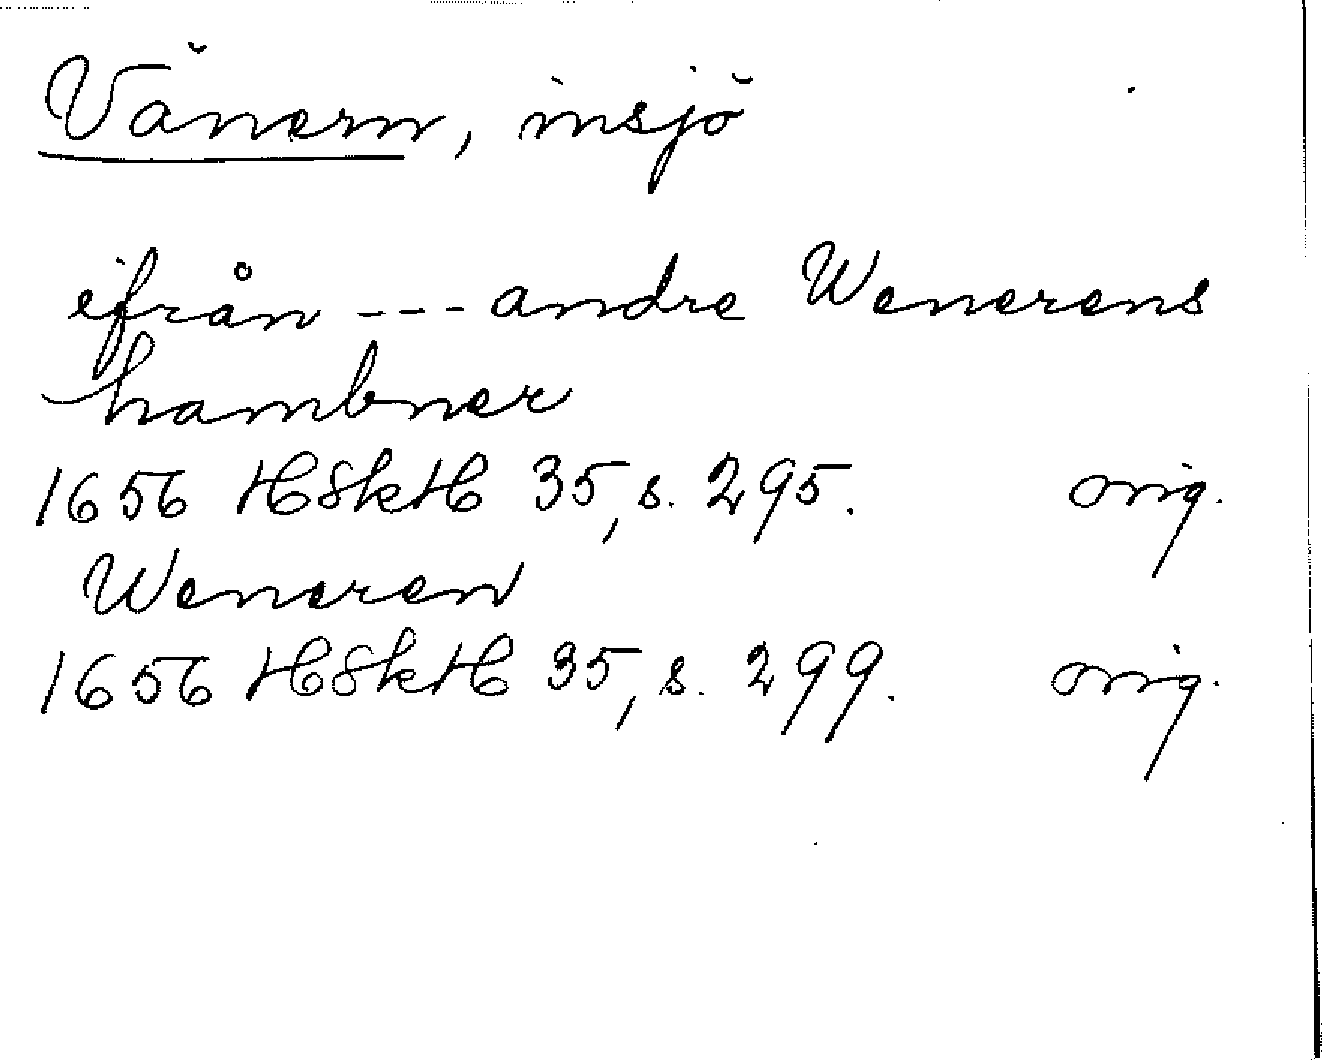 Vänern, insjö
ifrån --- andre Wenerens
hambner
1656 HSkH 35, s. 295. orig.
Weneren
1656 HSkH 35, s. 299. orig.